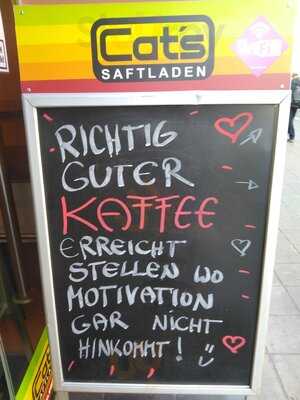 Cat's
SAFTLADEN
RICHTIG
GUTER
KAFFEE
ERREICHT
STELLEN WO
MOTIVATION
GAR NICHT
HINKOMMT!
Cat's